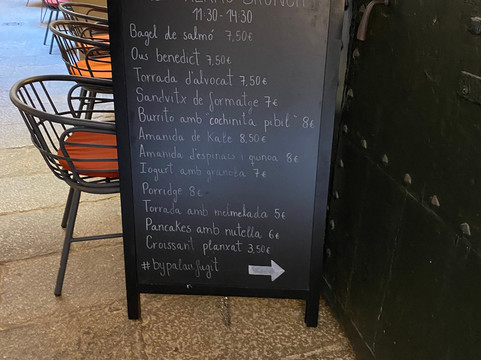 BRUNCH
11:30 - 14:30
Bagel de salmó 7,50€
Ous benedict 7,50€
Torrada d'alvocat 7,50€
Sandvitx de formatge 7€
Burrito amb "cochinita pibil" 8€
Amanida de Kale 8,50€
Amanida d'espinacs i quinoa 8€
Iogurt amb granola 7€
Porridge 8€
Torrada amb melmelada 5€
Pancakes amb nutella 6€
Croissant planxat 3,50€
#bypalaufugit